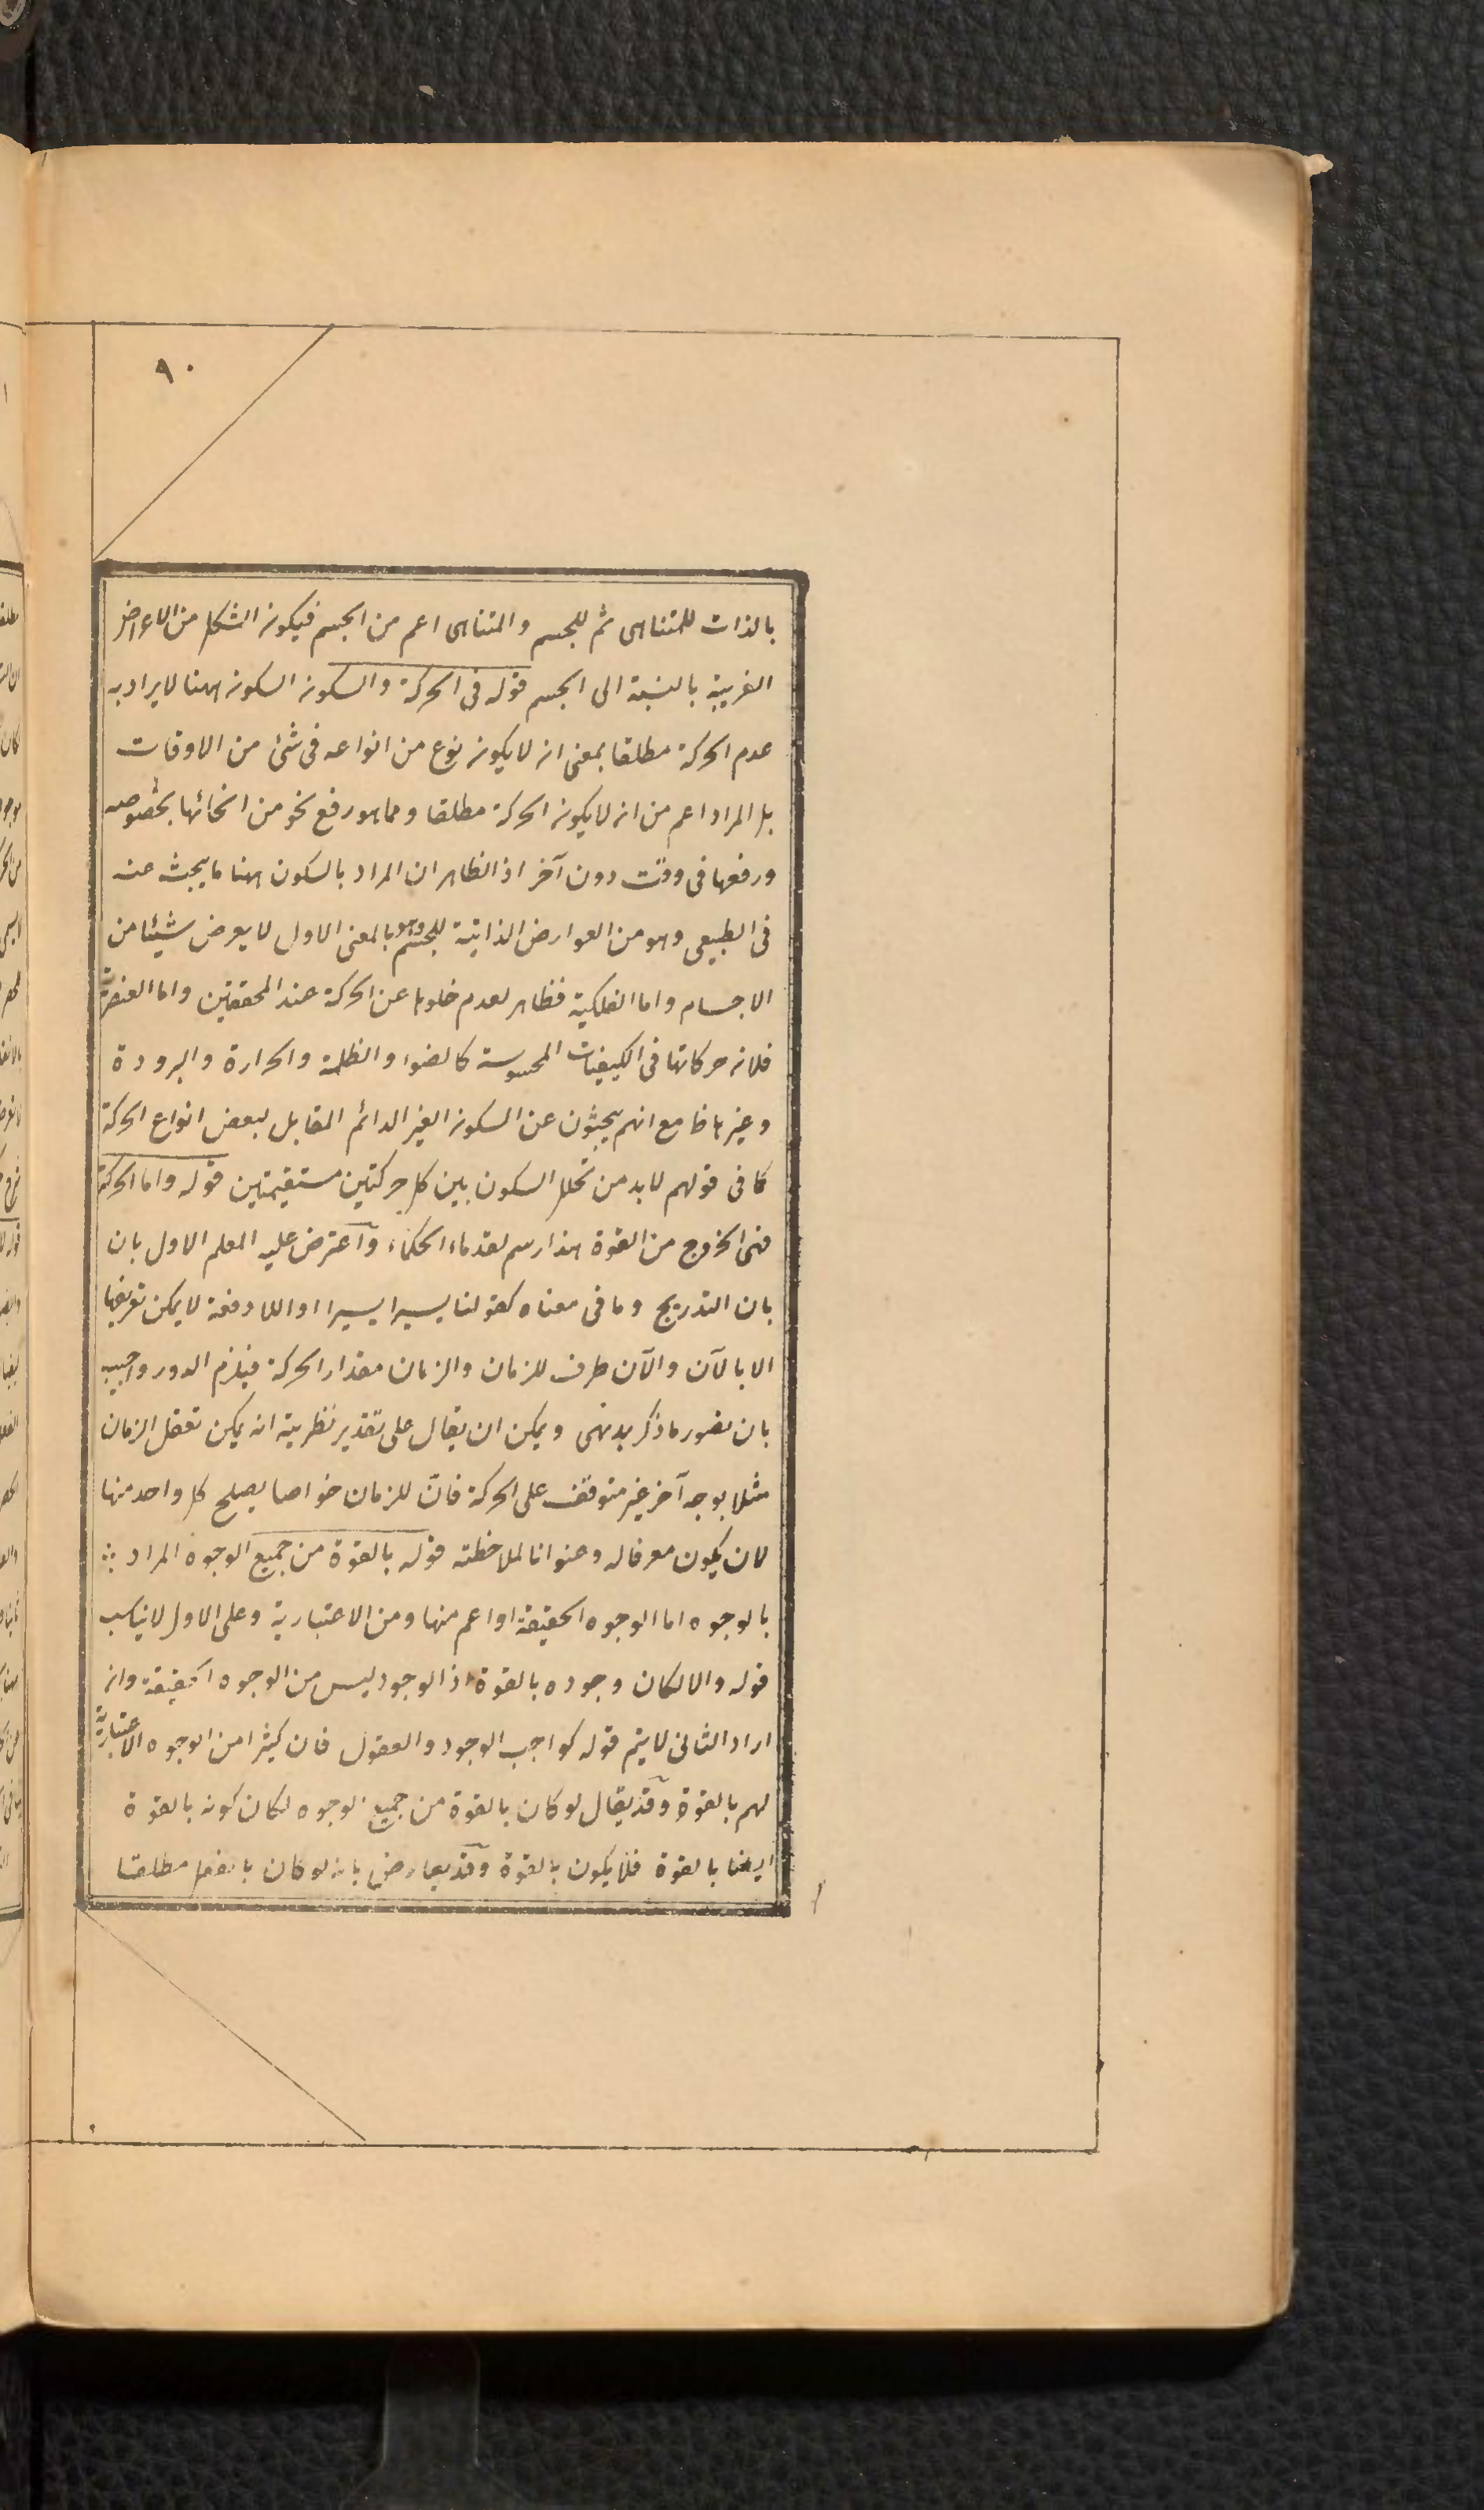 ٩٠
بالذات للمتناهى ثم للجسم والمتناهى اعم من الجسم فيكون الشكل من الاعراض
الغريبة بالنسبة الى الجسم قوله فى الحركة والسكون السكون ههنا لا يراد به
عدم الحركة مطلقا بمعنى انه لا يكون نوع من انواعه فى شئ من الاوقات
بل المراد اعم من انه لا يكون الحركة مطلقا ومما هو رفع نحو من انحائها بخصوصه
ورفعها فى وقت دون آخر اذ الظاهر ان المراد بالسكون ههنا ما يبحث عنه
فى الطبيعى وهو من العوارض الذاتية للجسم وهو بالمعنى الاول لا يعرض شيئا من
الاجسام واما الفلكية فظاهر لعدم خلوها عن الحركة عند المحققين واما العنصرية
فلانه حركاتها فى الكيفيات المحسوسة كالضوء والظلمة والحرارة والبرودة
وغيرها مع انهم يبحثون عن السكون الغير الدائم المقابل لبعض انواع الحركة
كما فى قولهم لابد من تخلل السكون بين كل حركتين مستقيمتين قوله واما الحركة
فهى الخروج من القوة هذا رسم لقدماء الحكماء وآعترض عليه المعلم الاول بان
بان التدريج وما فى معناه كقولنا يسيرا يسيرا او اللا دفعة لا يمكن تعريفها
الا بالآن والآن طرف للزمان والزمان مقدار الحركة فيلزم الدور واجيب
بان تصور ما ذكر بديهى ويمكن ان يقال على تقدير نظرية انه يمكن تعقل الزمان
مثلا بوجه آخر غير متوقف على الحركة فانّ للزمان خواصا يصلح كل واحد منها
لان يكون معرفا له وعنوانا لملاحظته قوله بالقوة من جميع الوجوه المراد
بالوجوه اما الوجوه الحقيقة او اعم منها ومن الاعتبارية وعلى الاول لا يناسب
قوله والا لكان وجوده بالقوة اذ الوجود ليس من الوجوه الحقيقة وانه
اراد الثانى لا يتم قوله كواجب الوجود والعقول فان كثيرا من الوجوه الاعتبارية
لهم بالقوة وقد يقال لو كان بالقوة من جميع الوجوه لكان كونه بالقوة
ايضا بالقوة فلا يكون بالقوة وقد يعارض بانه لو كان بالفعل مطلقا